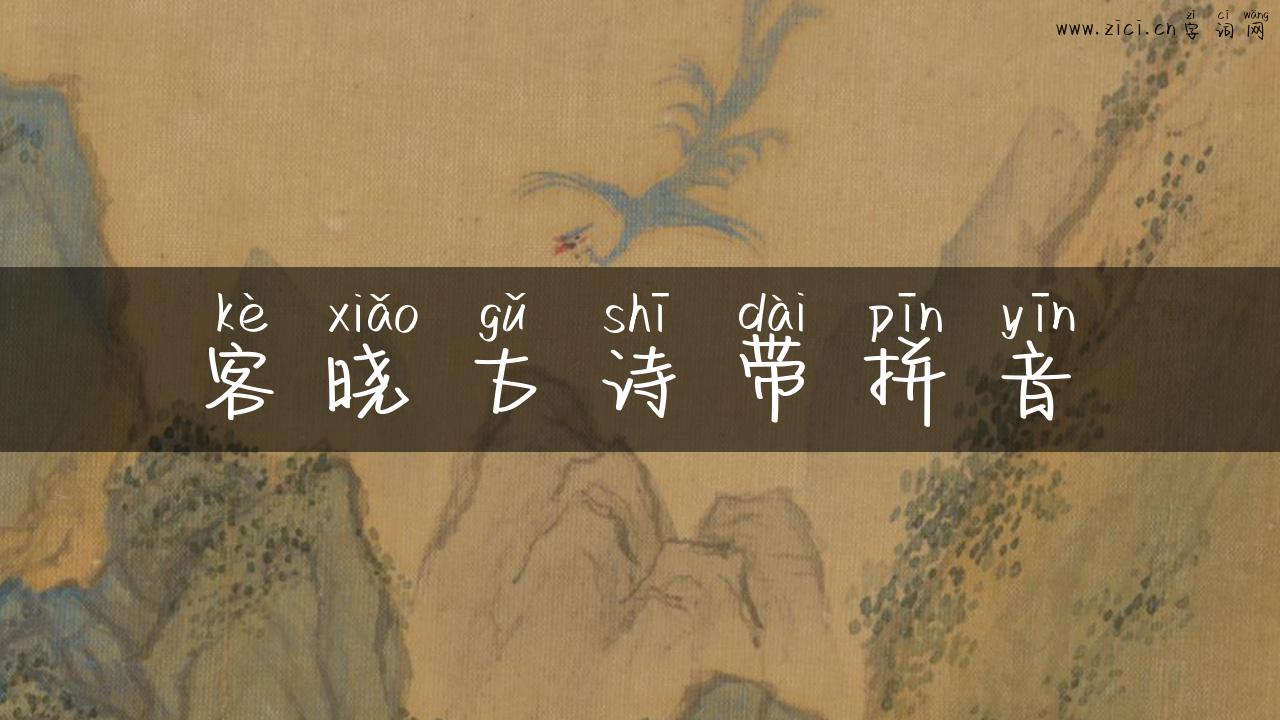 zì cí wǎng
www.zici.cn字词网
kè xiǎo gǔ shī dài pīn yīn
客晓古诗带拼音